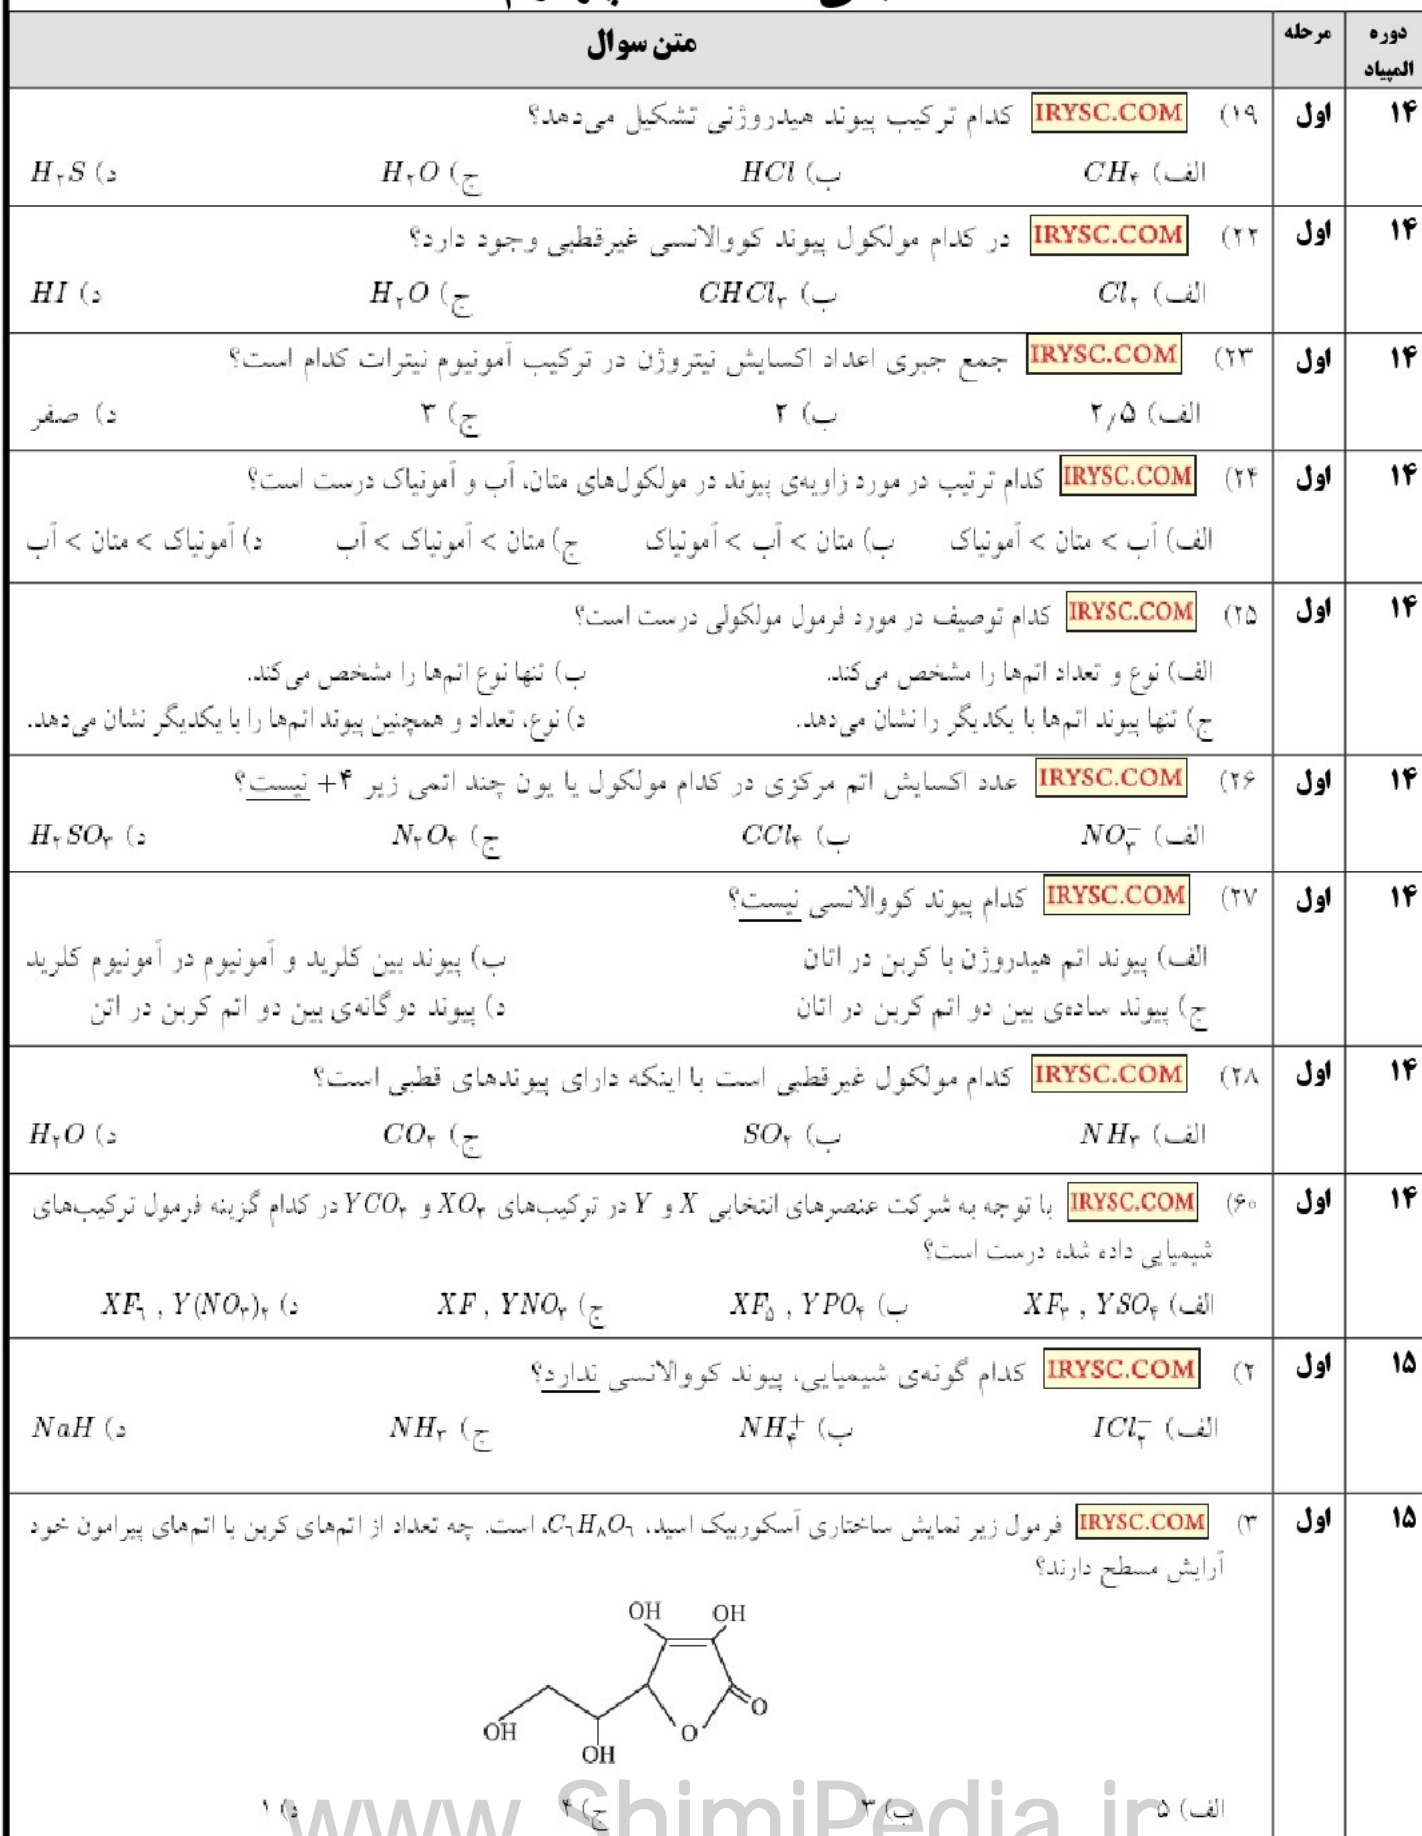 دوره المپیاد	مرحله	متن سوال
۱۴	اول	۱۹) IRYSC.COM کدام ترکیب پیوند هیدروژنی تشکیل می‌دهد؟
الف) CH۴	ب) HCl	ج) H۲O	د) H۲S
۱۴	اول	۲۲) IRYSC.COM در کدام مولکول پیوند کووالانسی غیرقطبی وجود دارد؟
الف) Cl۲	ب) CHCl۳	ج) H۲O	د) HI
۱۴	اول	۲۳) IRYSC.COM جمع جبری اعداد اکسایش نیتروژن در ترکیب آمونیوم نیترات کدام است؟
الف) ۲٫۵	ب) ۲	ج) ۳	د) صفر
۱۴	اول	۲۴) IRYSC.COM کدام ترتیب در مورد زاویه‌ی پیوند در مولکول‌های متان، آب و آمونیاک درست است؟
الف) آب > متان > آمونیاک	ب) متان > آب > آمونیاک	ج) متان > آمونیاک > آب	د) آمونیاک > متان > آب
۱۴	اول	۲۵) IRYSC.COM کدام توصیف در مورد فرمول مولکولی درست است؟
الف) نوع و تعداد اتم‌ها را مشخص می‌کند.	ب) تنها نوع اتم‌ها را مشخص می‌کند.
ج) تنها پیوند اتم‌ها با یکدیگر را نشان می‌دهد.	د) نوع، تعداد و همچنین پیوند اتم‌ها را با یکدیگر نشان می‌دهد.
۱۴	اول	۲۶) IRYSC.COM عدد اکسایش اتم مرکزی در کدام مولکول یا یون چند اتمی زیر ۴+ نیست؟
الف) NO۳⁻	ب) CCl۴	ج) N۲O۴	د) H۲SO۳
۱۴	اول	۲۷) IRYSC.COM کدام پیوند کووالانسی نیست؟
الف) پیوند اتم هیدروژن با کربن در اتان	ب) پیوند بین کلرید و آمونیوم در آمونیوم کلرید
ج) پیوند ساده‌ی بین دو اتم کربن در اتان	د) پیوند دوگانه‌ی بین دو اتم کربن در اتن
۱۴	اول	۲۸) IRYSC.COM کدام مولکول غیرقطبی است با اینکه دارای پیوندهای قطبی است؟
الف) NH۳	ب) SO۲	ج) CO۲	د) H۲O
۱۴	اول	۶۰) IRYSC.COM با توجه به شرکت عنصرهای انتخابی X و Y در ترکیب‌های XO۳ و YCO۳ در کدام گزینه فرمول ترکیب‌های
شیمیایی داده شده درست است؟
الف) XF۳ , YSO۴	ب) XF۵ , YPO۴	ج) XF , YNO۳	د) XF۶ , Y(NO۳)۲
۱۵	اول	۲) IRYSC.COM کدام گونه‌ی شیمیایی، پیوند کووالانسی ندارد؟
الف) ICl۲⁻	ب) NH۴⁺	ج) NH۳	د) NaH
۱۵	اول	۳) IRYSC.COM فرمول زیر نمایش ساختاری آسکوربیک اسید، C۶H۸O۶، است. چه تعداد از اتم‌های کربن با اتم‌های پیرامون خود
آرایش مسطح دارند؟
OH	OH
O
OH	O
OH
الف) ۵	ب) ۳	ج) ۴	د) ۱
www.ShimiPedia.ir